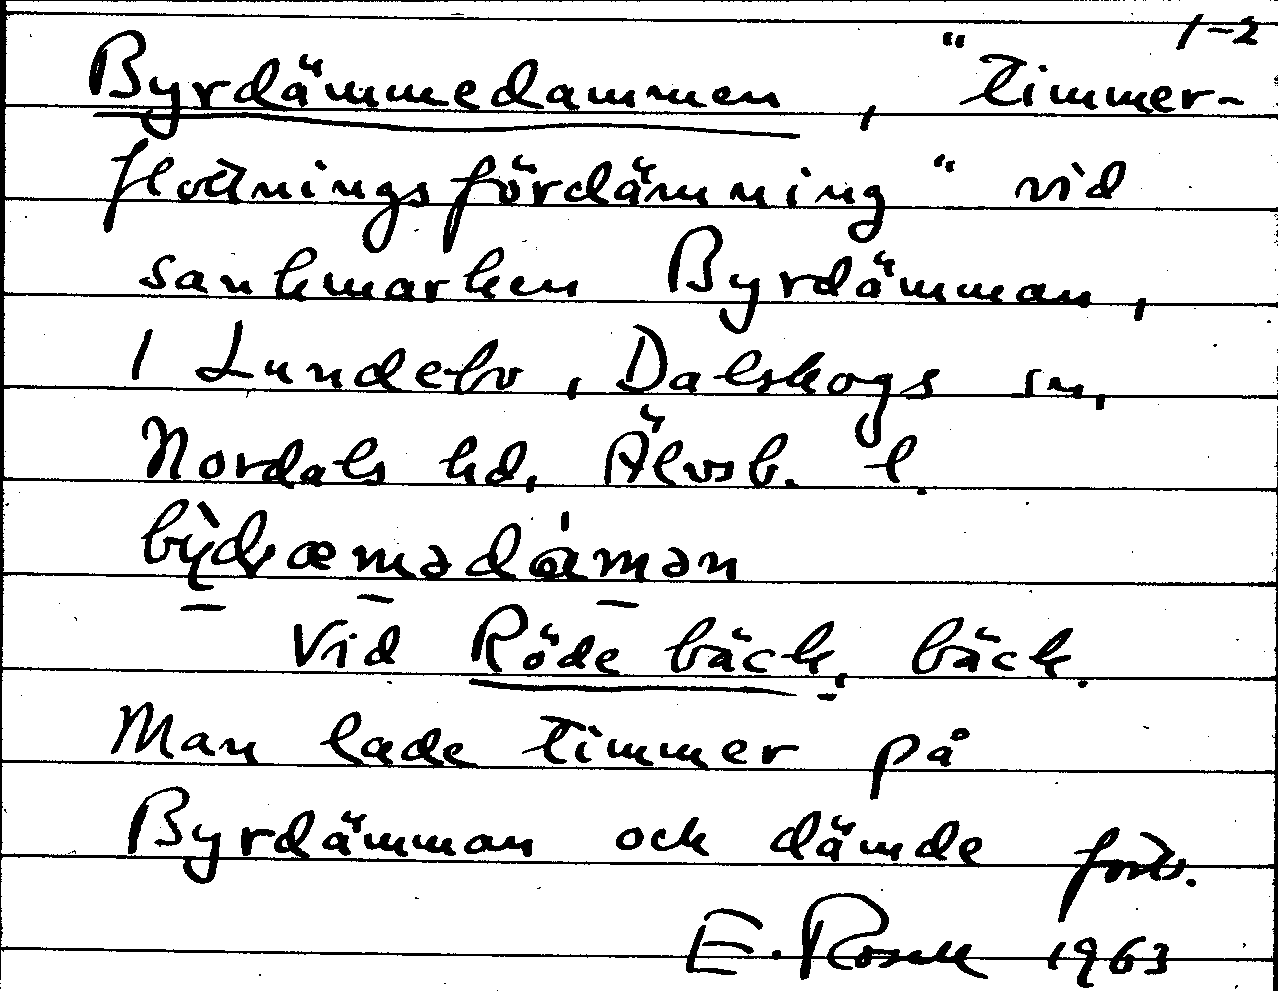 1-2
Byrdämmedammen, "timmer-
flottningsfördämning" vid
sankmarken Byrdämman,
i Lundebo, Dalskogs sn,
Nordals hd, Älvsb. l.
Vid Röde bäck, bäck.
Man lade timmer på
Byrdämman och dämde
E. Rosell 1963